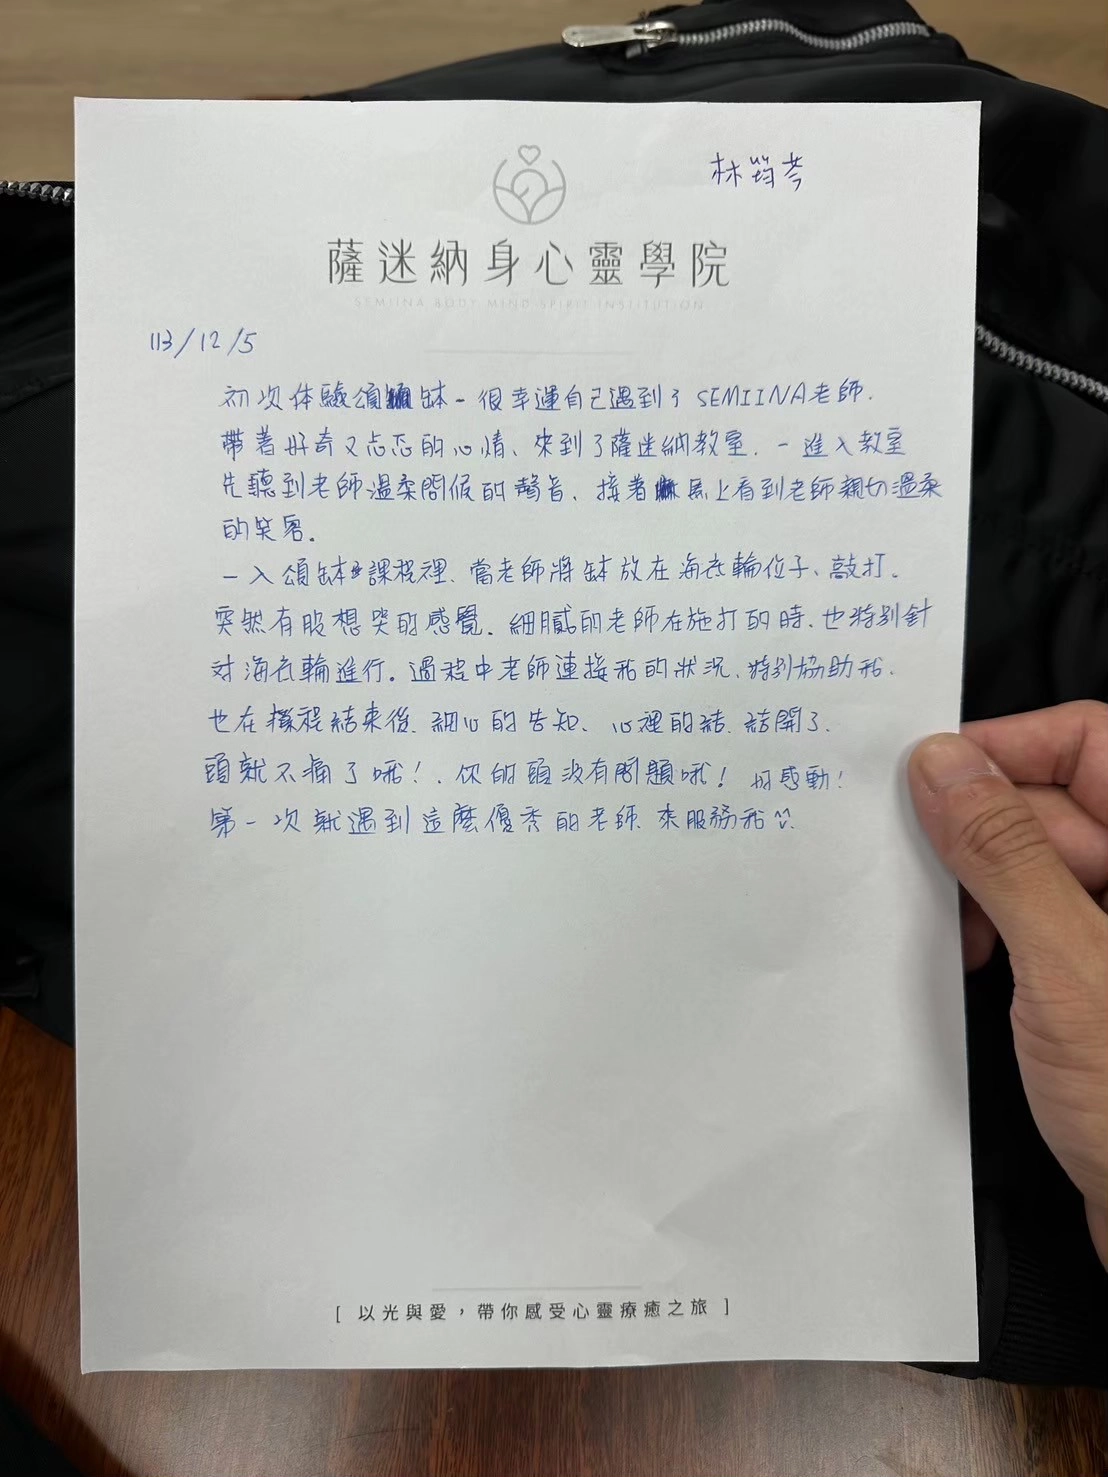 林筠芩
薩迷納身心靈學院
SEMIINA BODY MIND SPIRIT INSTITUTION
113/12/5
初次体驗頌缽-很幸運自己遇到了SEMIINA老師.
帶著好奇又忐忑的心情、來到了薩迷納教室.一進入教室
先聽到老師溫柔問候的聲音、接著馬上看到老師親切溫柔
的笑容。
一入頌缽課程裡、當老師將缽放在海底輪位子、敲打.
突然有股想哭的感覺.細膩的老師在施打的時.也特別針
對海底輪進行。過程中老師連接我的狀況、特別協助我.
也在課程結束後.細心的告知、心裡的結.結開了.
頭就不痛了哦!.你的頭沒有問題哦!好感動!
第一次就遇到這麼優秀的老師.來服務我
[ 以光與愛，帶你感受心靈療癒之旅 ]